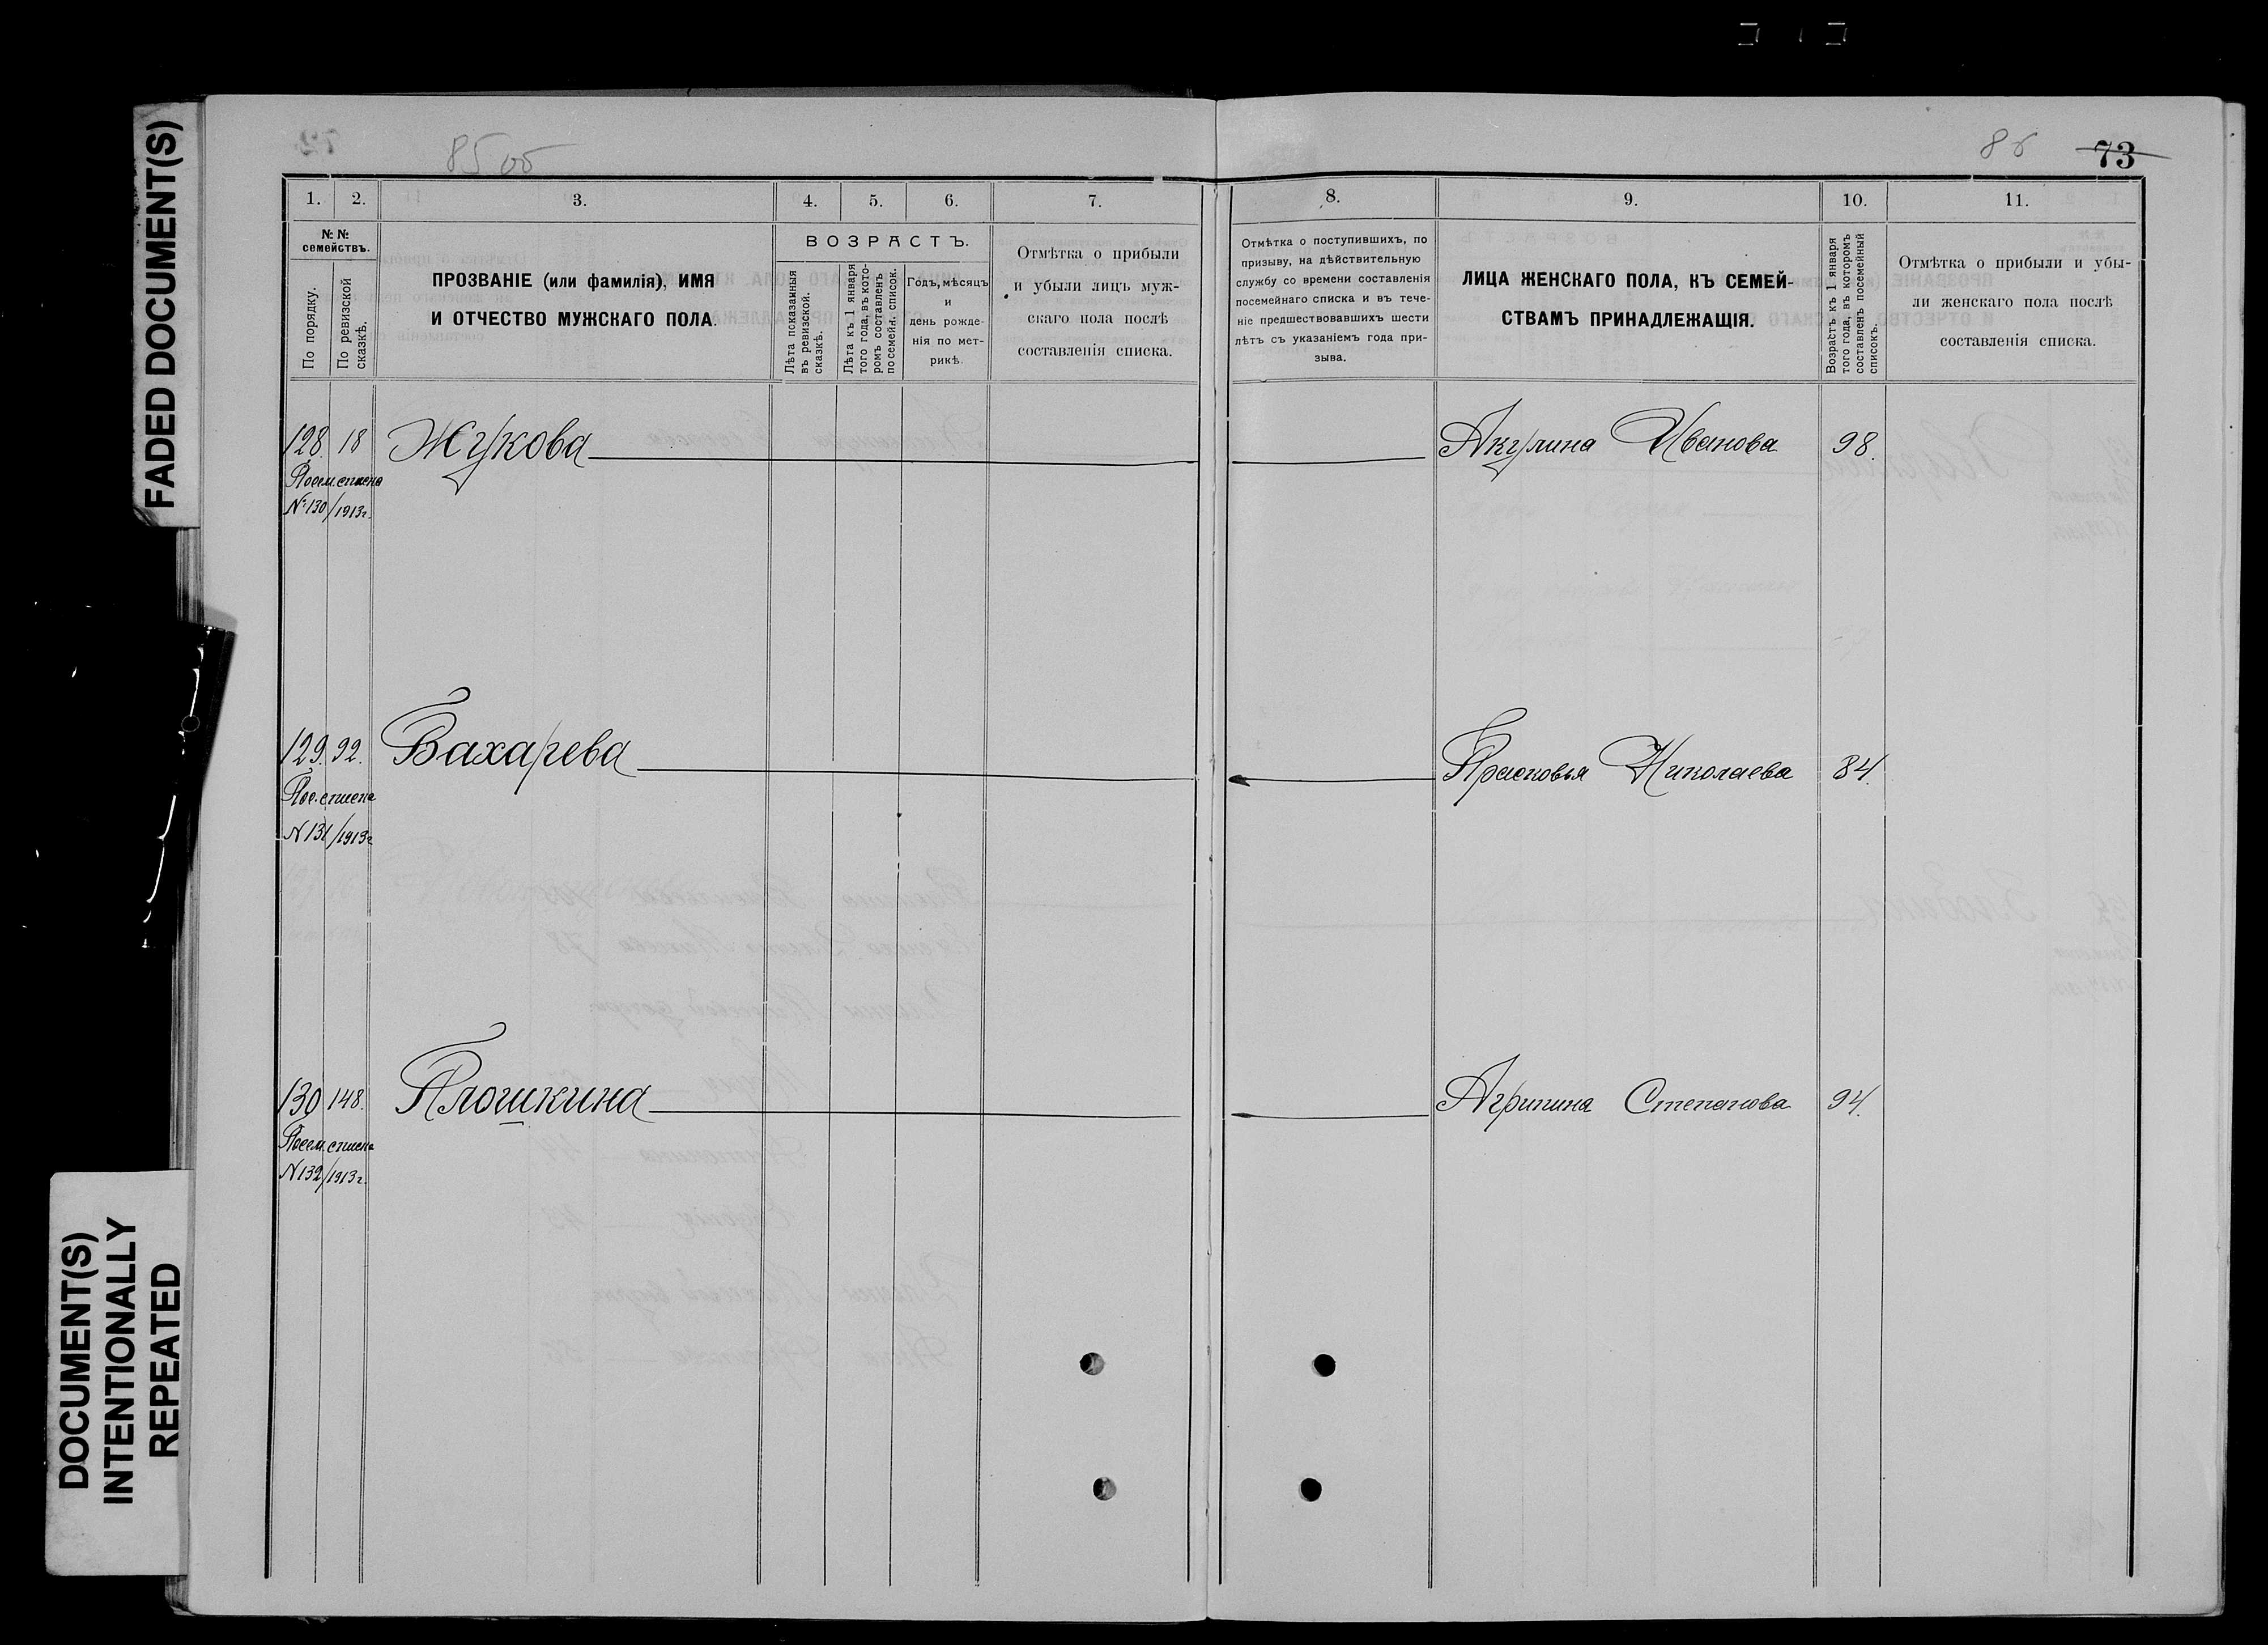 FADED DOCUMENT(S)
DOCUMENT(S)
INTENTIONALLY
REPEATED
85 об
86 73
1. 2. 3. 4. 5. 6. 7.
№ №
семействъ.
По порядку.
По ревизской
сказкѣ.
ПРОЗВАНІЕ (или фамилія), ИМЯ
И ОТЧЕСТВО МУЖСКАГО ПОЛА.
ВОЗРАСТЪ.
Лѣта показанныя
въ ревизской.
сказкѣ.
Лѣта къ 1 января
того года, въ кото-
ромъ составленъ
посемейн. список.
Годъ, мѣсяцъ
и
день рожде-
нія по мет-
рикѣ.
Отмѣтка о прибыли
и убыли лицъ муж-
скаго пола послѣ
составленія списка.
128. 18 Жукова
Посем. списка
№ 130/1913г.
129. 92. Вахарева
Пос. списка
N 131/1913г
130 148. Плошкина
Посем. списка
N 132/1913г.
8. 9. 10. 11.
Отмѣтка о поступившихъ, по
призыву, на дѣйствительную
службу со времени составленія
посемейнаго списка и въ тече-
ніе предшествовавшихъ шести
лѣтъ съ указаніемъ года при-
зыва.
ЛИЦА ЖЕНСКАГО ПОЛА, КЪ СЕМЕЙ-
СТВАМЪ ПРИНАДЛЕЖАЩІЯ.
Возрастъ къ 1 января
того года, въ которомъ
составленъ посемейный
списокъ.
Отмѣтка о прибыли и убы-
ли женскаго пола послѣ
составленія списка.
Акулина Иванова 98.
Прасковья Николаева 84.
Агрипина Степанова 94.